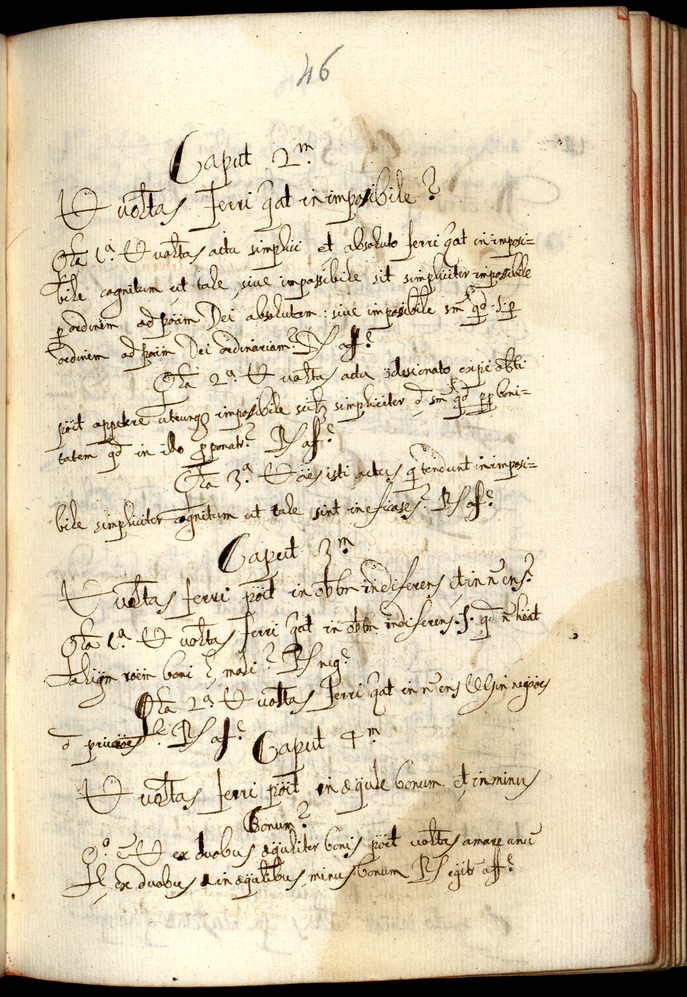 46
Caput 2m
U volt̃as ferri q̃at in impossibile?
Q̃ta 1ª U volt̃as actu simplici et absoluto ferri q̃at in imposi=
bile cognitum ut tale, sive impossibile sit simpliciter impossibile
p ordinem ad põam Dei absolutam: sive impossibile sm qd .s. p
ordinem ad põam Dei ordinariam? Rs aff.e
Q̃ta 2ª. U volt̃as actu
põit appetere utrumq impossibile scilz simpliciter & sm qd pp boni=
tatem qd in illo pponatr? Rs aff.e
Q̃ta 3ª. U oẽs isti actus q̃ tendunt in imposi=
bile simpliciter cognitum ut tale sint inefficases? Rs aff.e
Caput 3m
U volt̃as ferri põit in obtm indiferens et in ñ ens?
Q̃ta 1ª. U volt̃as ferri q̃at in obtm indiferens .s. qd ñ heãt
aliqm rõem boni l mali? Rs neg.e
Q̃ta 2ª U volt̃as ferri q̃at in ñ ens in negaões
& privaões? Rs aff.e
Caput 4m
U volt̃as ferri põit in æquale bonum et in minus
Bonum?
Q.o U ex duobus æqualiter bonis põit volt̃as amare unũ
et ex duobus inæqualibus, minus bonum Rs aff.e